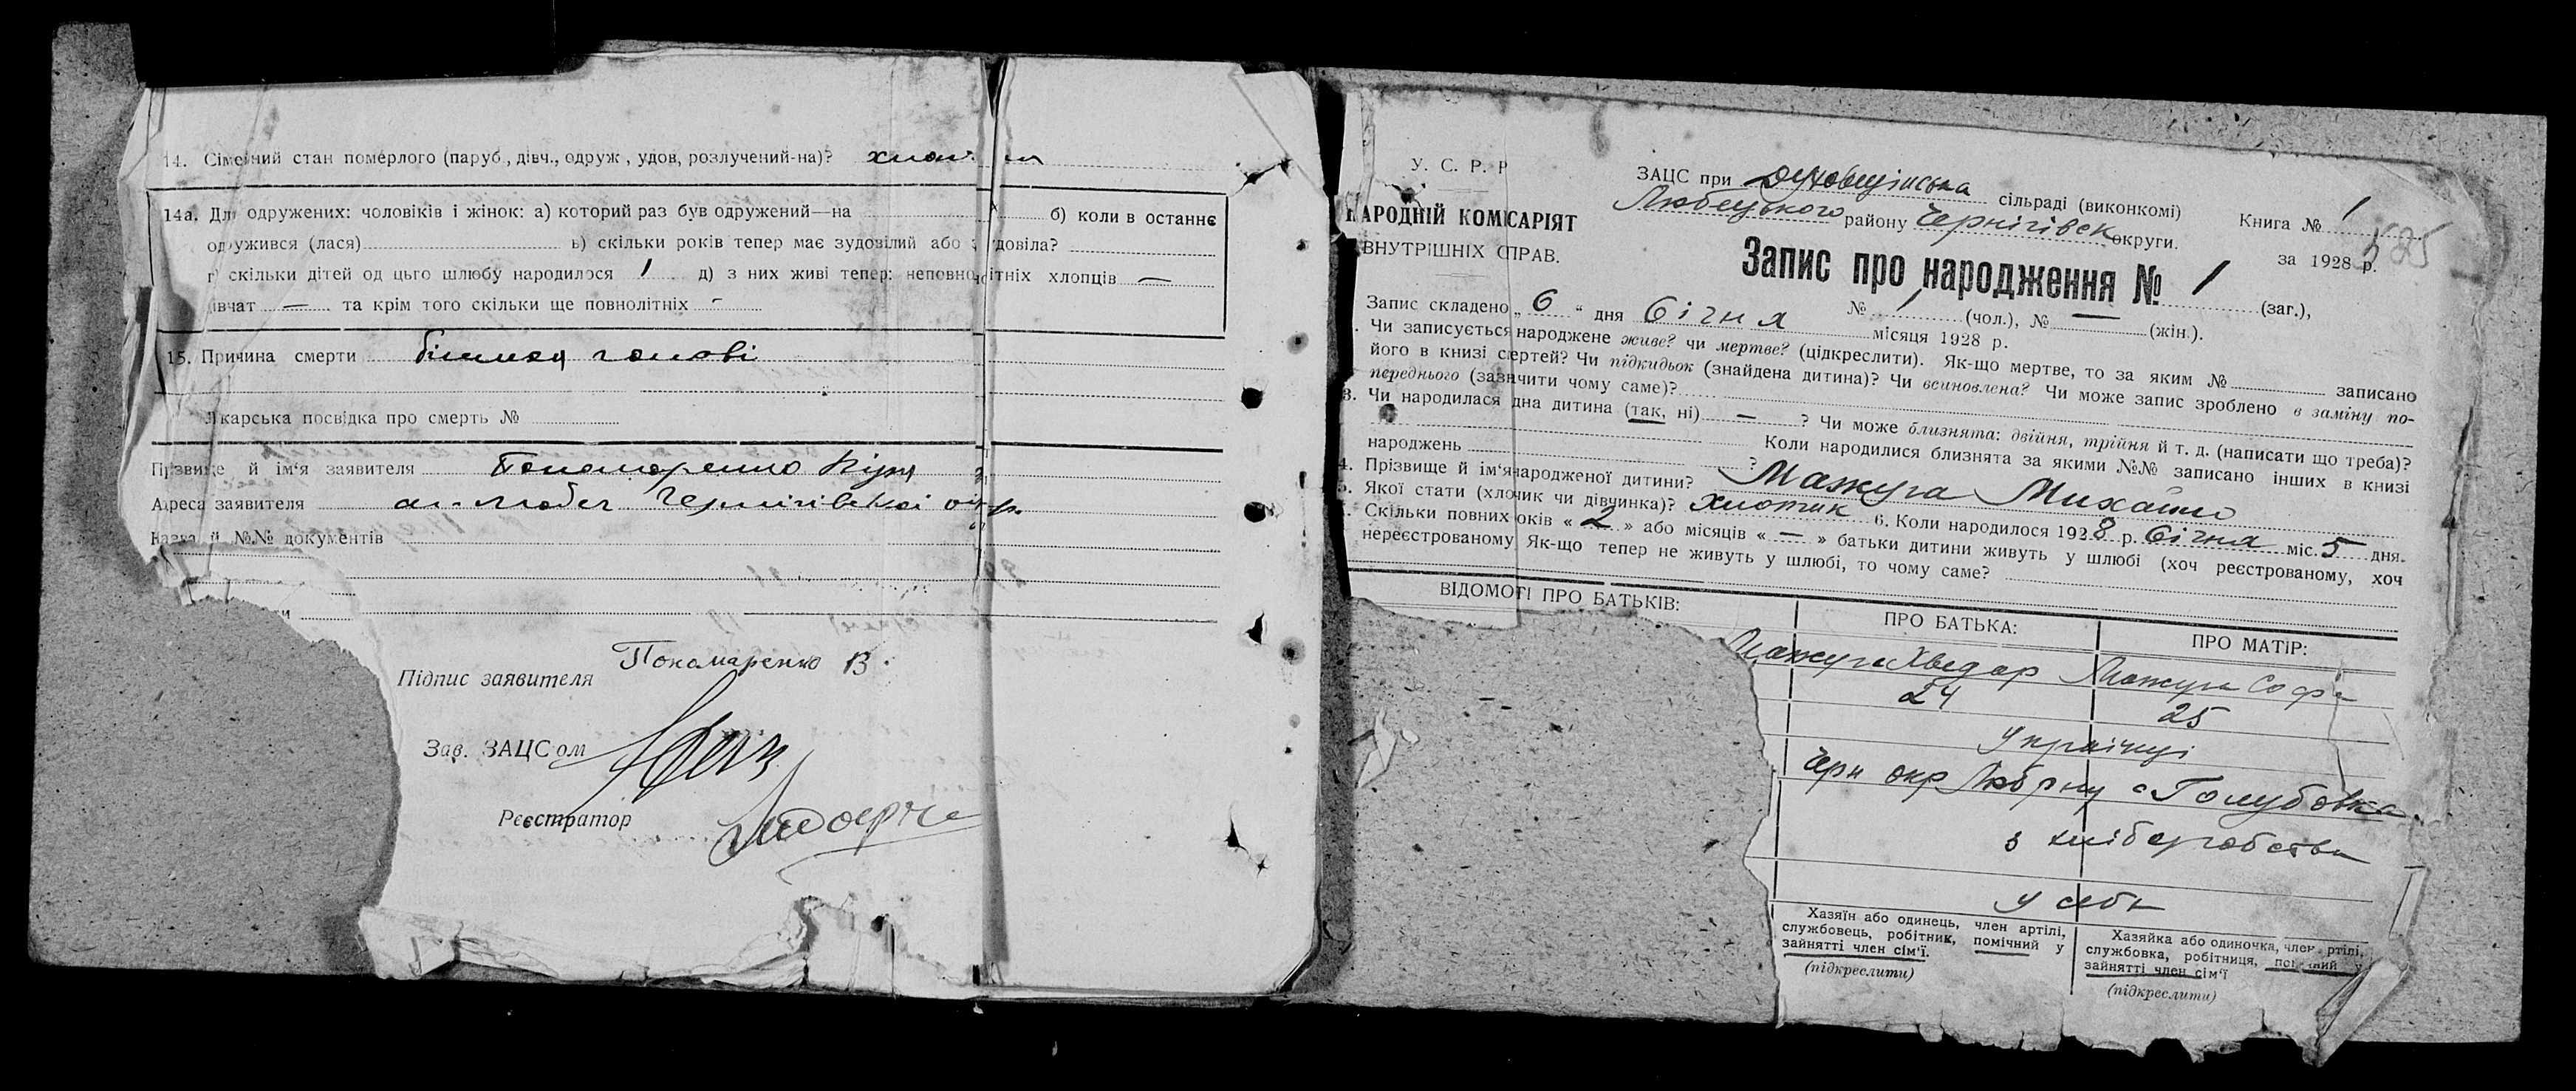 14. Сімейний стан померлого (паруб., дівч., одруж., удов, розлучений-на)?
14а. Для одружених: чоловіків і жінок: а) которий раз був одружений—на б) коли в останнє
одружився (лася) в) скільки років тепер має зудовілий або здовіла?
г) скільки дітей од цього шлюбу народилося 1 д) з них живі тепер: неповнолітніх хлопців —
дівчат — та крім того скільки ще повнолітніх -
15. Причина смерти
Лікарська посвідка про смерть №
Прізвище й ім'я заявителя Пономаренко
Адреса заявителя Любеч Чернігівської окр.
Назва й №№ документів
Підпис заявителя Пономаренко В.
Зав. ЗАЦСом
Реєстратор
У. С. Р. Р
НАРОДНІЙ КОМІСАРІЯТ
ВНУТРІШНІХ СПРАВ.
ЗАЦС при сільраді (виконкомі)
Любецького району Чернігівск округи.
Книга № 1
525
за 1928 р.
Запис про народження № 1 (заг.),
№ 1 (чол.), № — (жін.).
Запис складено „ 6 “ дня Січня місяця 1928 р.
Чи записується народжене живе? чи мертве? (підкреслити). Як-що мертве, то за яким № записано
його в книзі смертей? Чи підкидьок (знайдена дитина)? Чи всиновлена? Чи може запис зроблено в заміну по-
переднього (зазначити чому саме)?
3. Чи народилася дна дитина (так, ні) — ? Чи може близнята: двійня, трійня й т. д. (написати що треба)?
Коли народилися близнята за якими №№ записано інших в книзі
народжень ?
4. Прізвище й ім'я народженої дитини? Мажуга Михайло
5. Якої стати (хлопчик чи дівчинка)? хлопчик 6. Коли народилося 1928 р. Січня міс. 5 дня.
Скільки повних років « 2 » або місяців « — » батьки дитини живуть у шлюбі (хоч реєстрованому, хоч
нереєстрованому Як-що тепер не живуть у шлюбі, то чому саме?
ВІДОМОТІ ПРО БАТЬКІВ: ПРО БАТЬКА: ПРО МАТІР:
Мажуга Хведор Мажуга Софа
24 25
Українці
Черн окр с Голубовка
з хліборобства
у себе
Хазяїн або одинець, член артілі,
службовець, робітник, помічний у
зайнятті член сім'ї.
(підкреслити)
Хазяйка або одиночка, член ртілі,
службовка, робітниця, помічний у
зайнятті член сім'ї
(підкреслити)